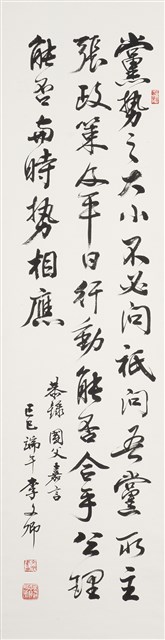 黨勢之大小不必問祇問吾黨所主
張政策及平日行動能否合乎公理
能否與時勢相應
恭錄國父嘉言
己巳端午李文卿